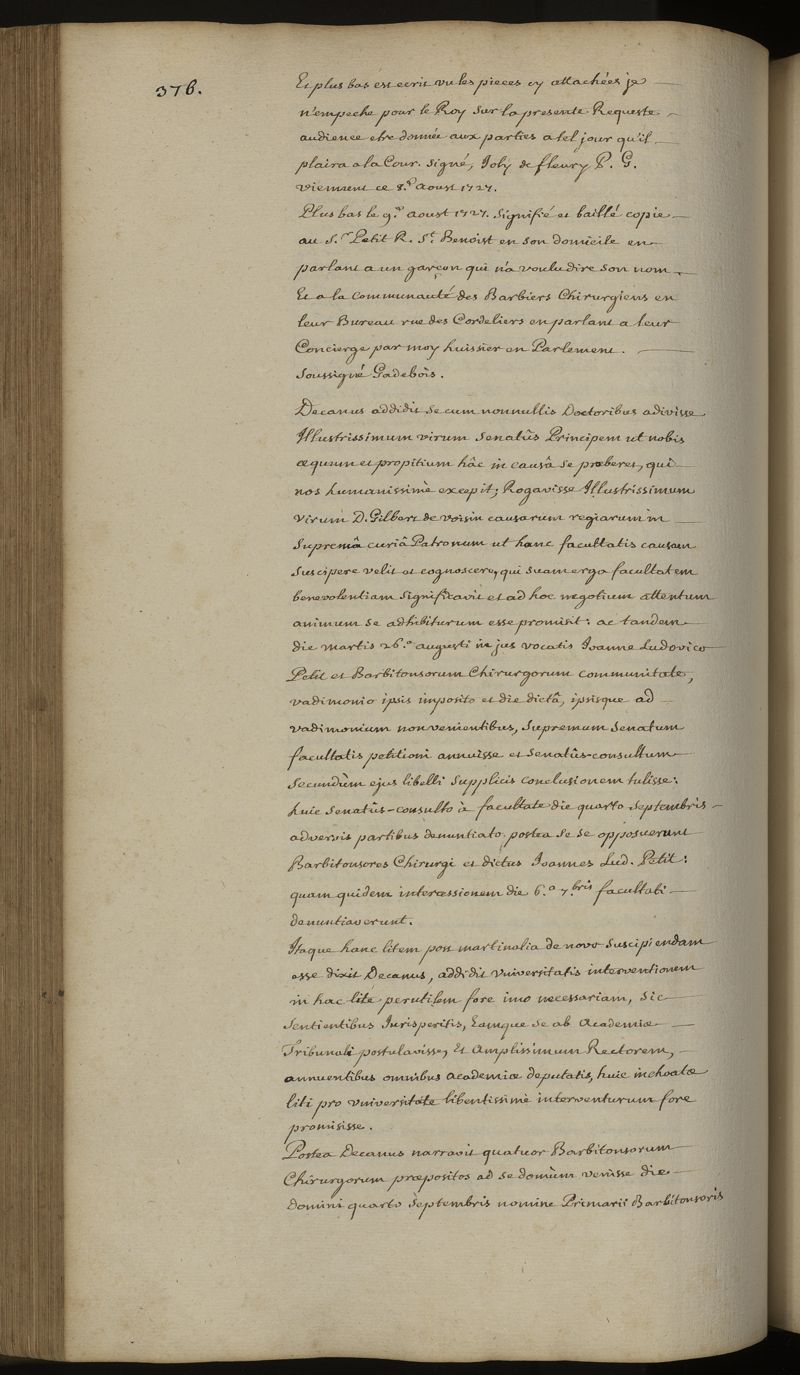 376.
Et plus bas est ecrit vu les pieces cy attachées je
n'empeche pour le Roy sur la presente Requeste
audience etre donnée aux parties a tel jour qu'il
plaira a la Cour. signé, Joly de fleury P. G.
viennent ce 8.e Aoust 1727.
Plus bas le 9.e aoust 1727. signifié et baillé copie
au S.r Petit R. S.t Benoist en son domicile en
parlant a un garçon qui n'a voulu dire son nom,
Et a la Communauté des Barbiers Chirurgiens en
leur Bureau rue des Cordeliers en parlant a leur
Concierge par moy huissier en Parlement.
Soussigné Gadebois.
Decanus addidit se cum nonnullis Doctoribus adivisse
Illustrissimum virum Senatûs Principem ut nobis
æquum et propitium hâc in causâ se præberet, qui
nos humanissimè excepit; Rogavisse Illustrissimum
virum D. Gilbert de voisin causarum regiarum in
Supremâ curiâ Patronum ut hanc facultatis causam
suscipere velit et cognoscere, qui suam erga facultatem
benevolentiam significavit et ad hoc negotium attentum
animum se adhibiturum esse promisit: ac tandem
die martis 26.a augusti in jus vocatis Joanne Ludovico
Petit et Barbitonsorum Chirurgorum communitate,
vadimonio ipsis imposito et die dictâ, ipsisque ad
vadimonium non venientibus, Supremum Senatum
facultatis petitioni annuisse et Senatûs-consultum
secundùm ejus libelli supplicis conclusionem tulisse:
huic Senatûs-consulto à facultate die quarto septembris
adversis partibus denuntiato postea se se opposuerunt
Barbitonsores Chirurgi et dictus Joannes Lud. Petit:
quam quidem intercessionem die 6.a 7.bris facultati
denuntiaverunt.
Itaque hanc litem post martinalia de novo suscipiendam
esse dixit Decanus, addidit Universitatis interventionem
in hac lite perutilem fore imo necessariam, sic
sentientibus Jurisperitis, Eamque se ab Academiæ
Tribunali postulavisse, Et Amplissimum Rectorem,
annuentibus omnibus academiæ deputatis, huic inchoatæ
liti pro universitate libentissimè interventurum fore
promisisse.
Postea Decanus narravit quatuor Barbitonsorum
Chirurgorum præpositos ad se domum venisse die
Domini quarto septembris nomine Primarii Barbitonsoris